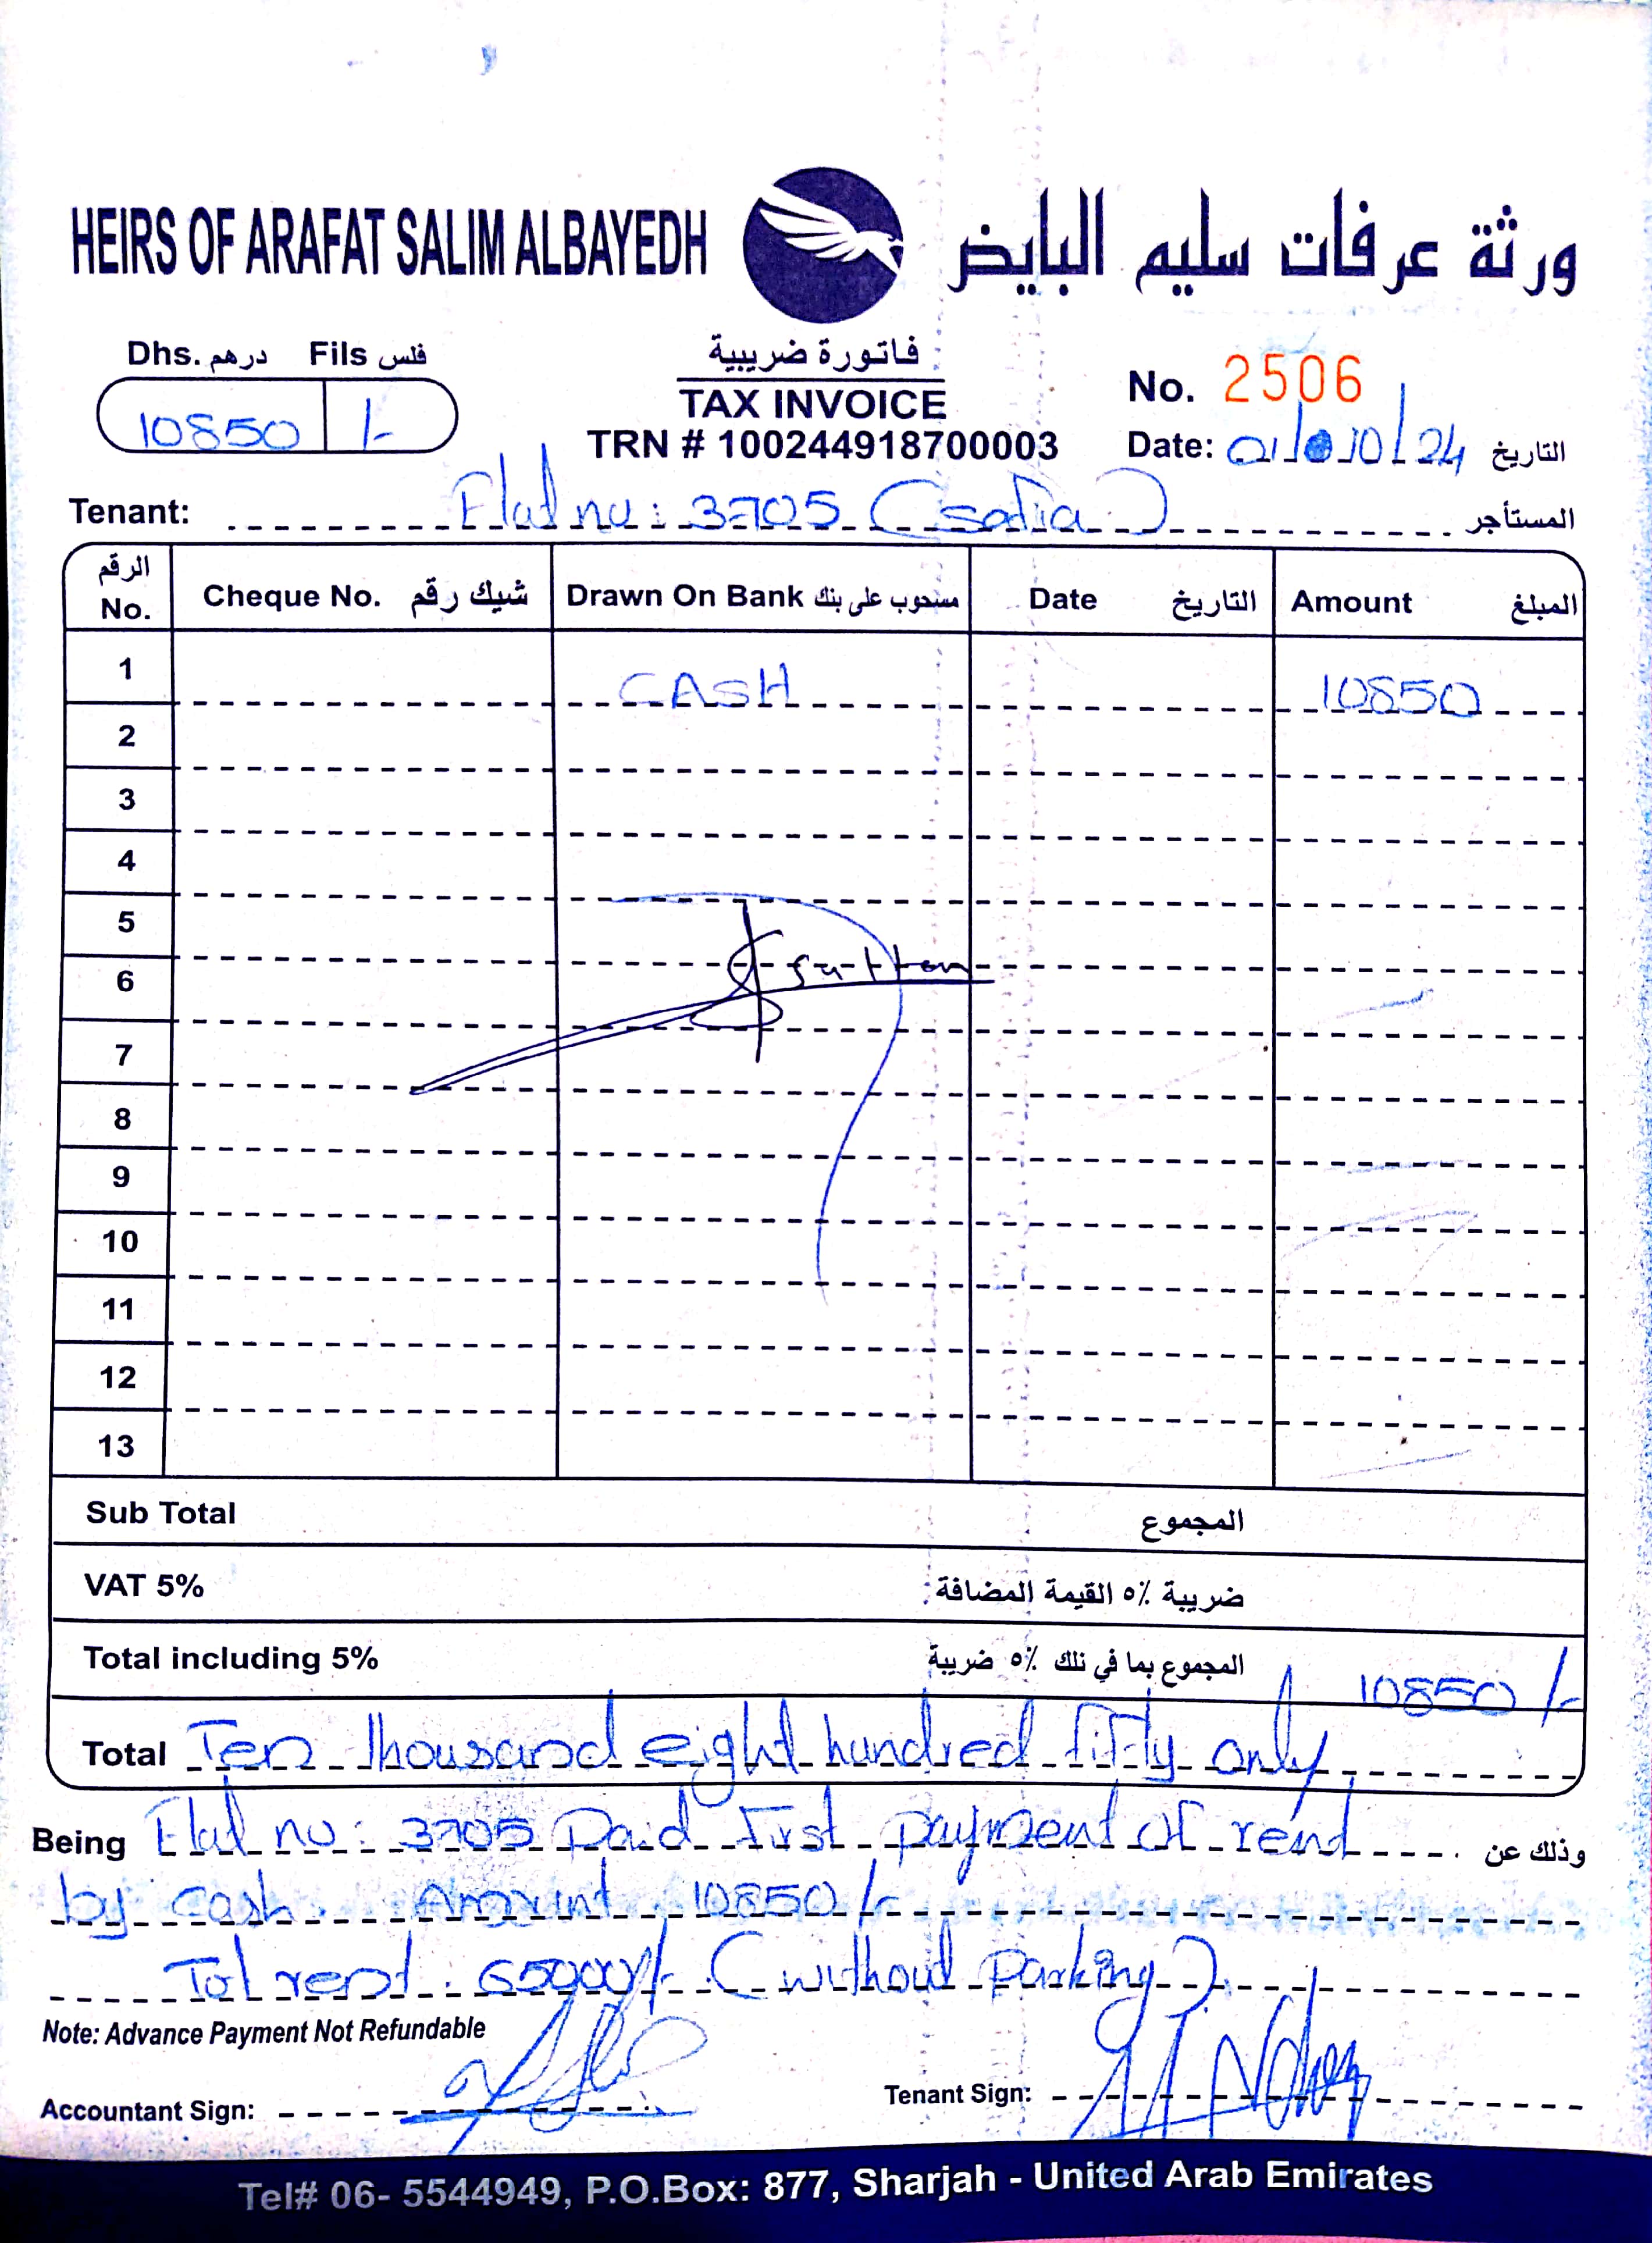 HEIRS OF ARAFAT SALIM ALBAYEDH ورثة عرفات سليم البايض
Dhs. درهم Fils فلس
10850 /-
فاتورة ضريبية
TAX INVOICE
TRN # 100244918700003
No. 2506
Date: 01/10/24 التاريخ
Tenant: Flat no: 3705 (Safia) المستأجر
الرقم No. Cheque No. شيك رقم Drawn On Bank مسحوب على بنك Date التاريخ Amount المبلغ
1 CASH 10850
2
3
4
5
6
7
8
9
10
11
12
13
Sub Total المجموع
VAT 5% ضريبة ٥٪ القيمة المضافة:
Total including 5% المجموع بما في ذلك ٥٪ ضريبة 10850/-
Total Ten thousand eight hundred fifty only
Being Flat no: 3705 Paid First payment of rent وذلك عن
by cash. Amount 10850/-
Tot rent: 65000/- (without parking).
Note: Advance Payment Not Refundable
Accountant Sign:
Tenant Sign:
Tel# 06- 5544949, P.O.Box: 877, Sharjah - United Arab Emirates